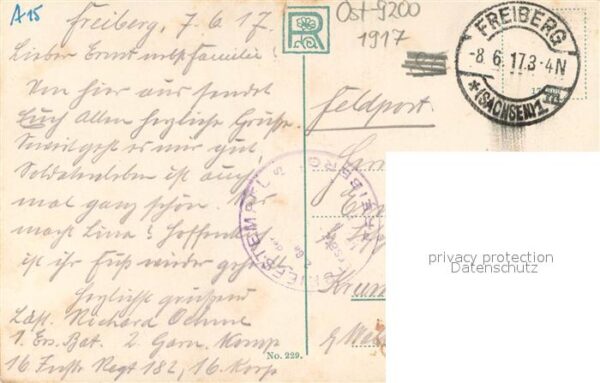 A15
Freiberg, 7. 6. 17.
Lieber Ernst nebst Familie!
Von hier aus sendet
Euch Allen herzliche Grüße.
Soweit geht es mir gut,
Soldatenleben ist auch
mal ganz schön. Was
macht Lina? Hoffentlich
ist ihr Fuß wieder geheilt
Herzlichst grüßend
Ldst. Richard Oehme
1. Ers. Bat. 2 Garn. Komp
16 Inftr. Regt 182, 16. Korp
R
No. 229.
Ost-9200
1917
FREIBERG
-8.6.17.3-4N
*(SACHSEN)1.
Feldpost.
privacy protection
Datenschutz